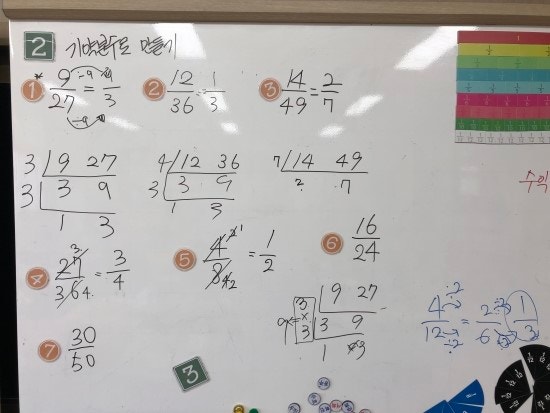 2 기약분수로 만들기
① 9/27 ÷9 ÷9 = 1/3
② 12/36 = 1/3
③ 14/49 = 2/7
3 | 9 27
3 | 3 9
1 3
4 | 12 36
3 | 3 9
1 3
7 | 14 49
2 7
④ 27/36 3 4 = 3/4
⑤ 4/8 = 1/2
⑥ 16/24
9 3 × 3 | 9 27
3 9
1 3
4/12 ÷2 ÷2 = 2/6 ÷2 ÷2 1/3
⑦ 30/50
3
수익